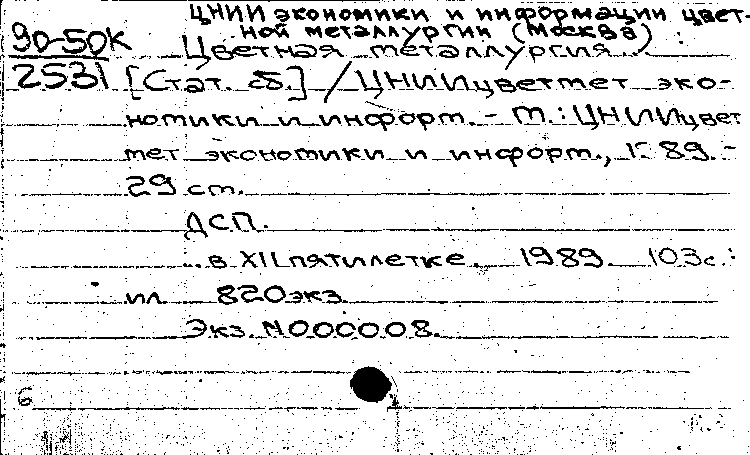 ЦНИИ экономики и информации цвет-
ной металлургии (Москва)
90-50к
2531
Цветная металлургия :
[Стат. сб.] / ЦНИИцветмет эко-
номики и информ. - М.: ЦНИИцвет
мет экономики и информ., 1989. -
29 см.
ДСП.
... в XII пятилетке. 1989. 103с.:
ил 820экз.
Экз. N000008.
6